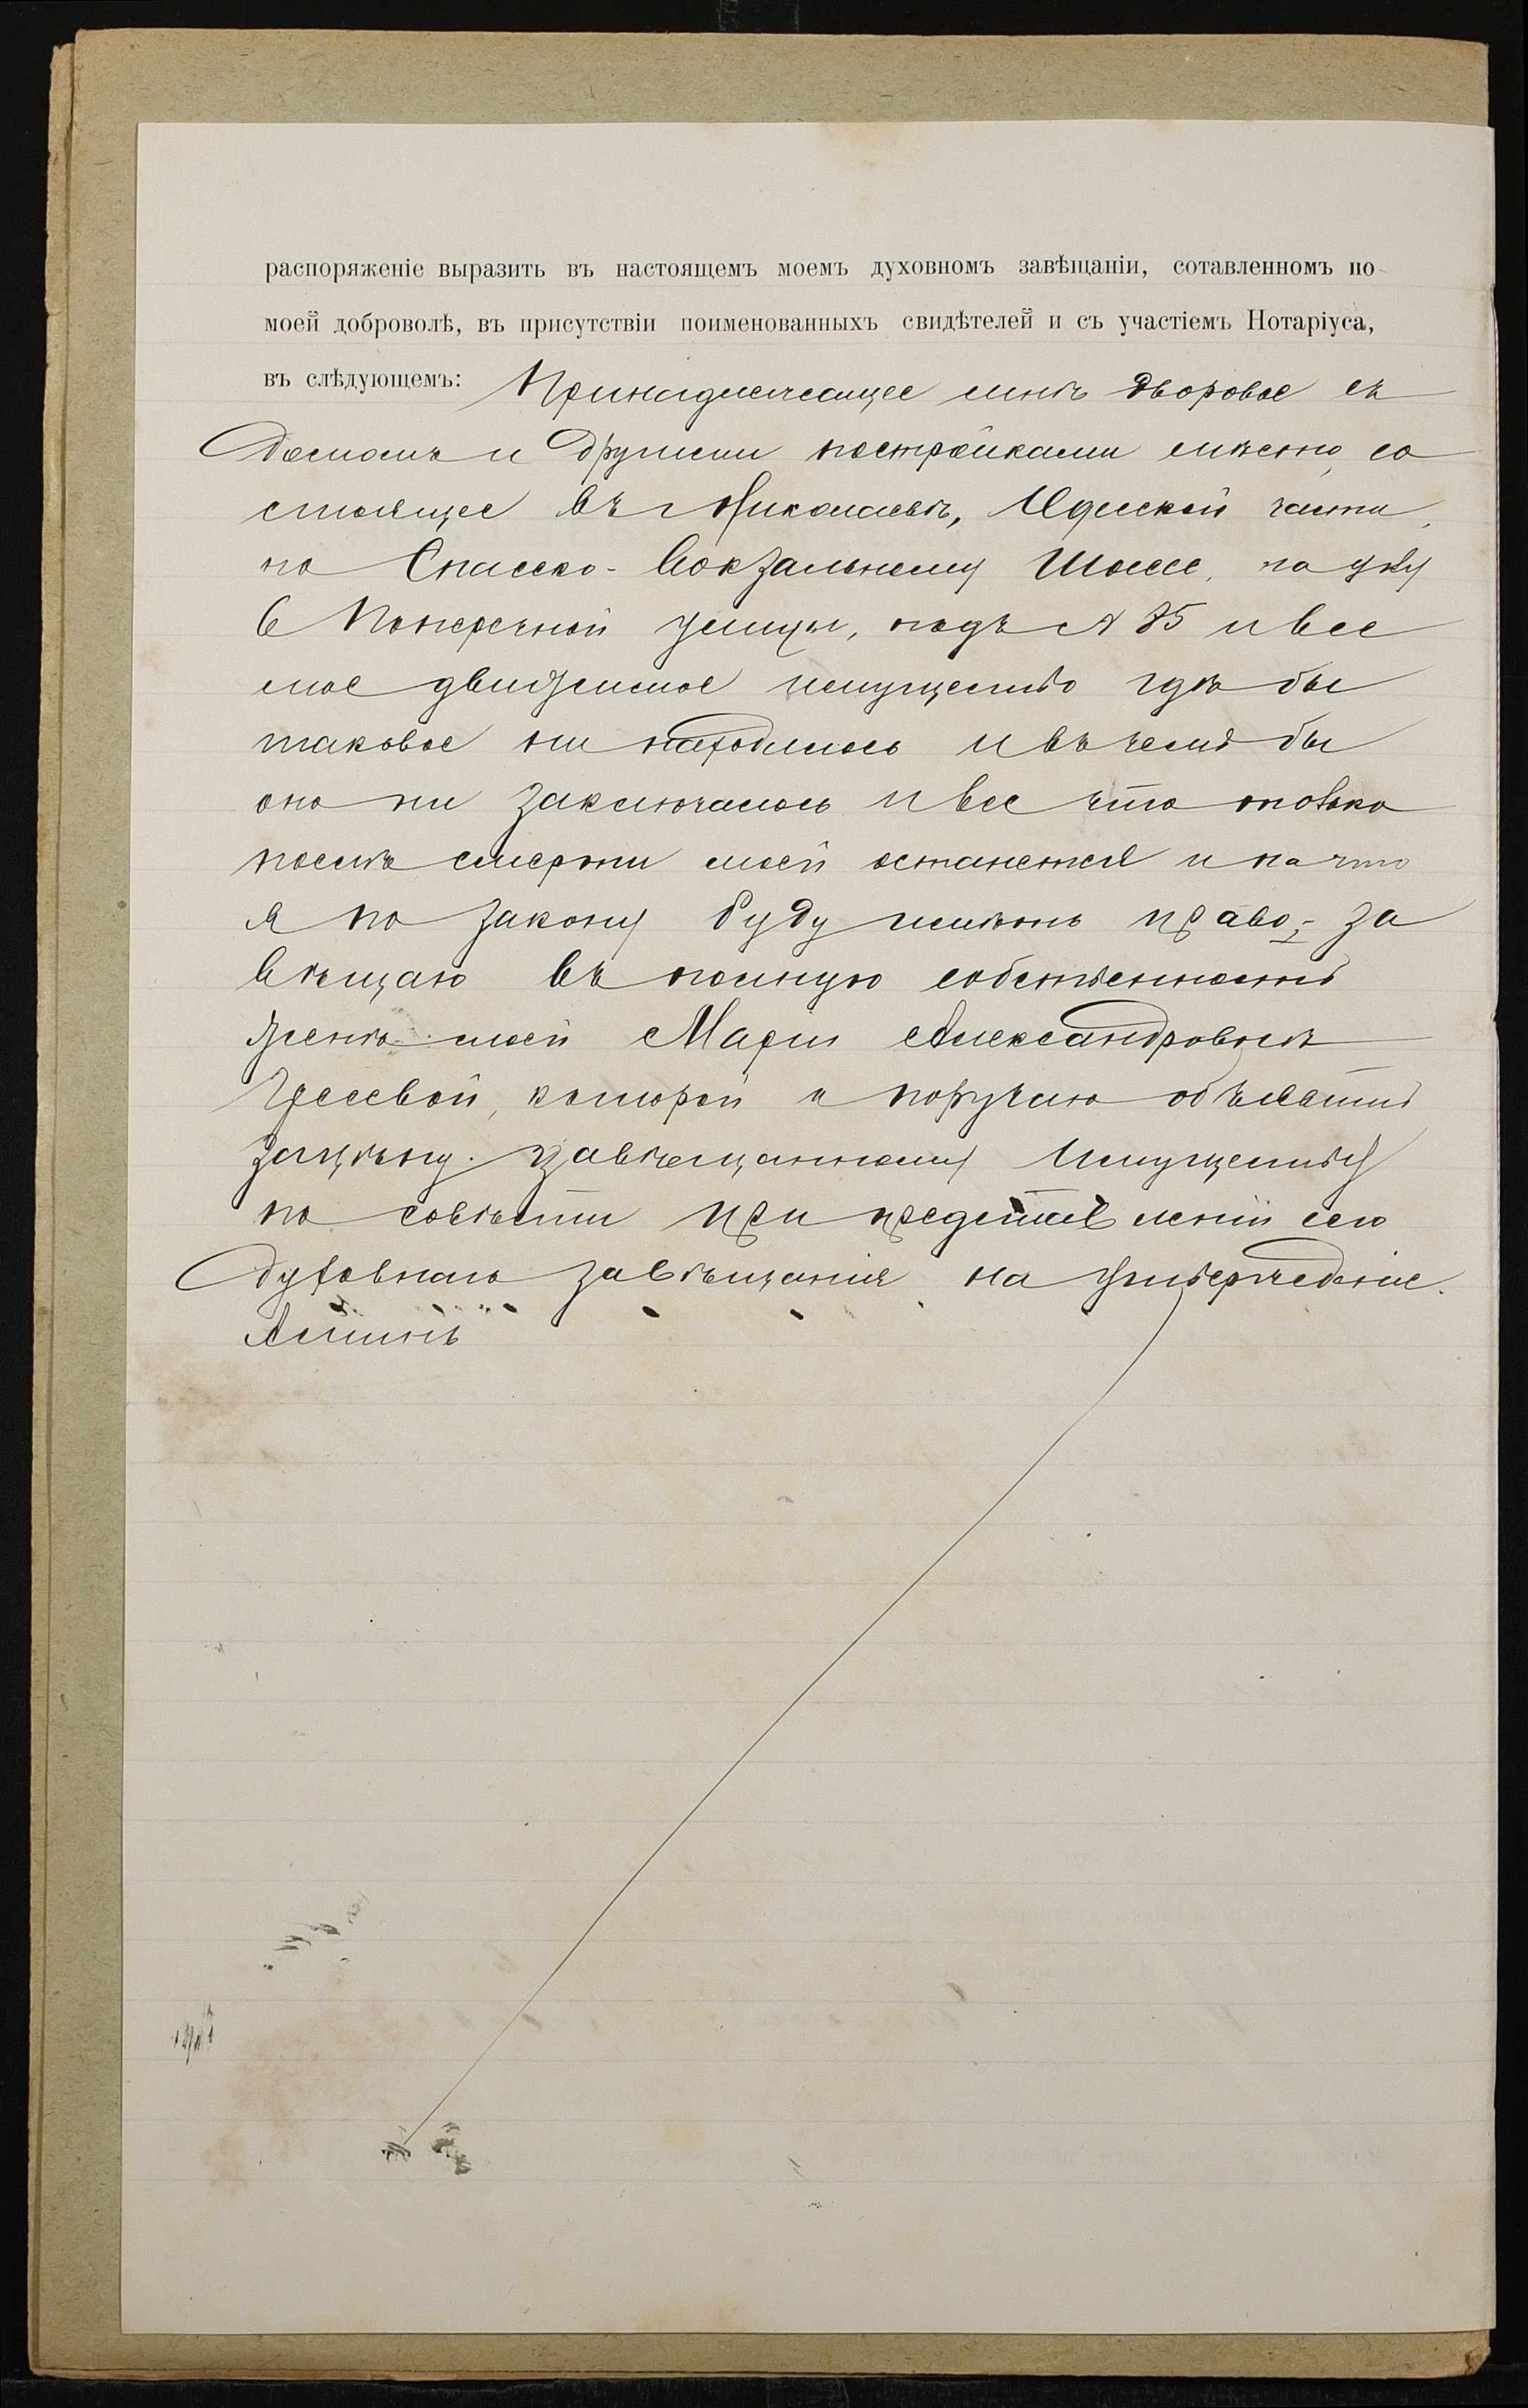 распоряженіе выразить въ настоящемъ моемъ духовномъ завѣщаніи, сотавленномъ по
моей доброволѣ, въ присутствіи поименованныхъ свидѣтелей и съ участіемъ Нотаріуса,
въ слѣдующемъ: Принадлежащее мнѣ дворовое съ
домомъ и другими постройками мѣсто, со
стоящее въ г Николаевѣ, Одесской части,
по Спасско-Вокзальному Шоссе, на углу
6 Поперечной улицы, подъ № 85 и все
мое движимое имущество гдѣ бы
таковое ни находилось и въ чемъ бы
оно ни заключалось и все что только
послѣ смерти моей останется и на что
я по закону буду имѣть право,- за
вѣщаю въ полную собственность
женѣ моей Маріи Александровнѣ
которой и поручаю объявить
зацѣну завѣщанному имуществу
по совѣсти при представленіи сего
духовнаго завѣщанія на утвержденіе.
Аминь